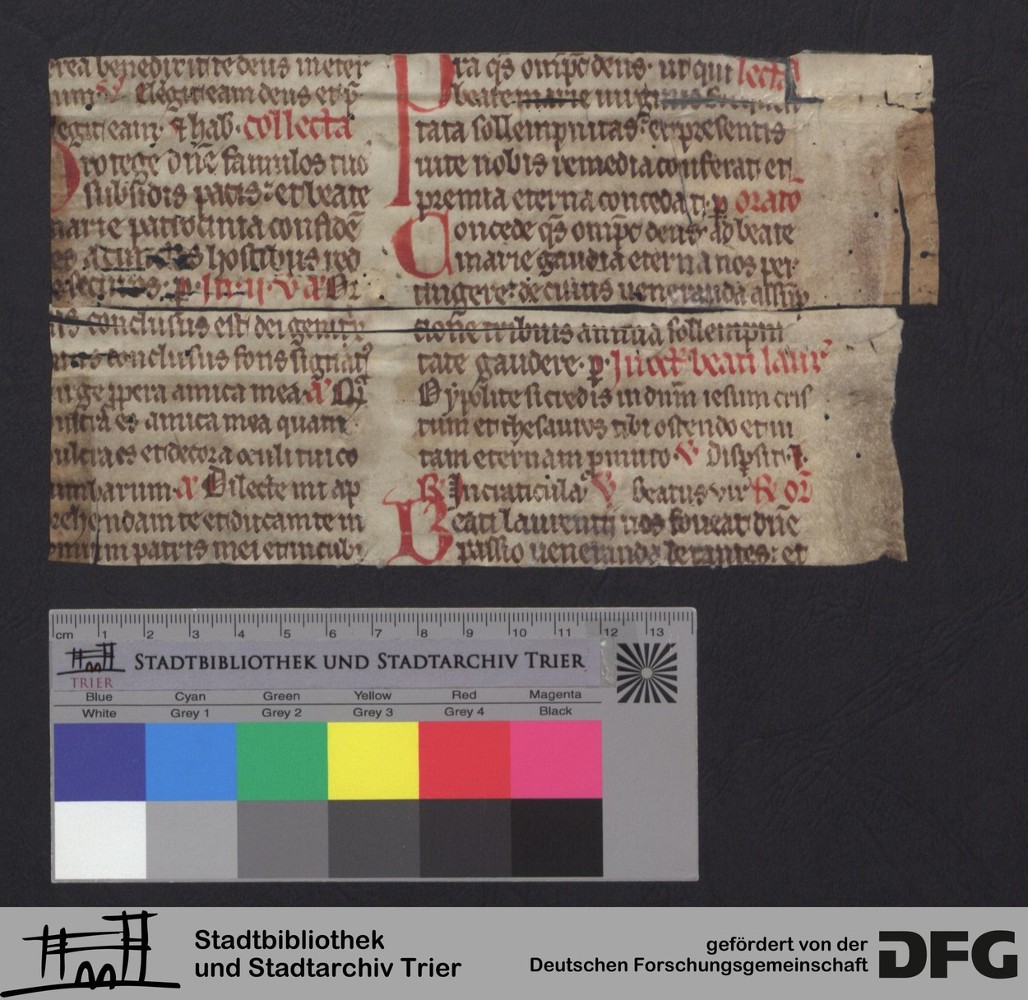 rea benedixit te deus in eter
num V Elegit eam deus et p̄
egit eam. Et hab. collecta
rotege dñe famulos tuo
subsidiis pacis: et beate
marie patrocinia confidē
hostibus red
p. In
conclusus est dei genitri
conclusus fons signat
ppera amica mea a
es amica mea quam
es et decora oculi tui co
umbarum. a Dilecte mi ap
rehendam te et ducam te in
omum patris mei et in cubi
Pra qs omīps deus. ut qui lecta
beate marie uirginis
tata sollempnitas: et presentis
uite nobis remedia conferat et
premia eterna concedat. p orato
Concede qs omīps deus. ad beate
marie gaudia eterna nos per
tingere: de cuius ueneranda assūp
cione tribuis annua sollempni
tate gaudere. p In oct beati laur
Ypolite si credis in dnm iesum cris
tum et thesauros tibi ostendo et ui
tam eternam pmitto V Dispsit
R In craticula V beatus vir R or
Beati laurentii nos foueat dñe
passio ueneranda letantes: et
cm 1 2 3 4 5 6 7 8 9 10 11 12 13
STADTBIBLIOTHEK UND STADTARCHIV TRIER
TRIER
Blue Cyan Green Yellow Red Magenta
White Grey 1 Grey 2 Grey 3 Grey 4 Black
Stadtbibliothek
und Stadtarchiv Trier
gefördert von der
Deutschen Forschungsgemeinschaft
DFG